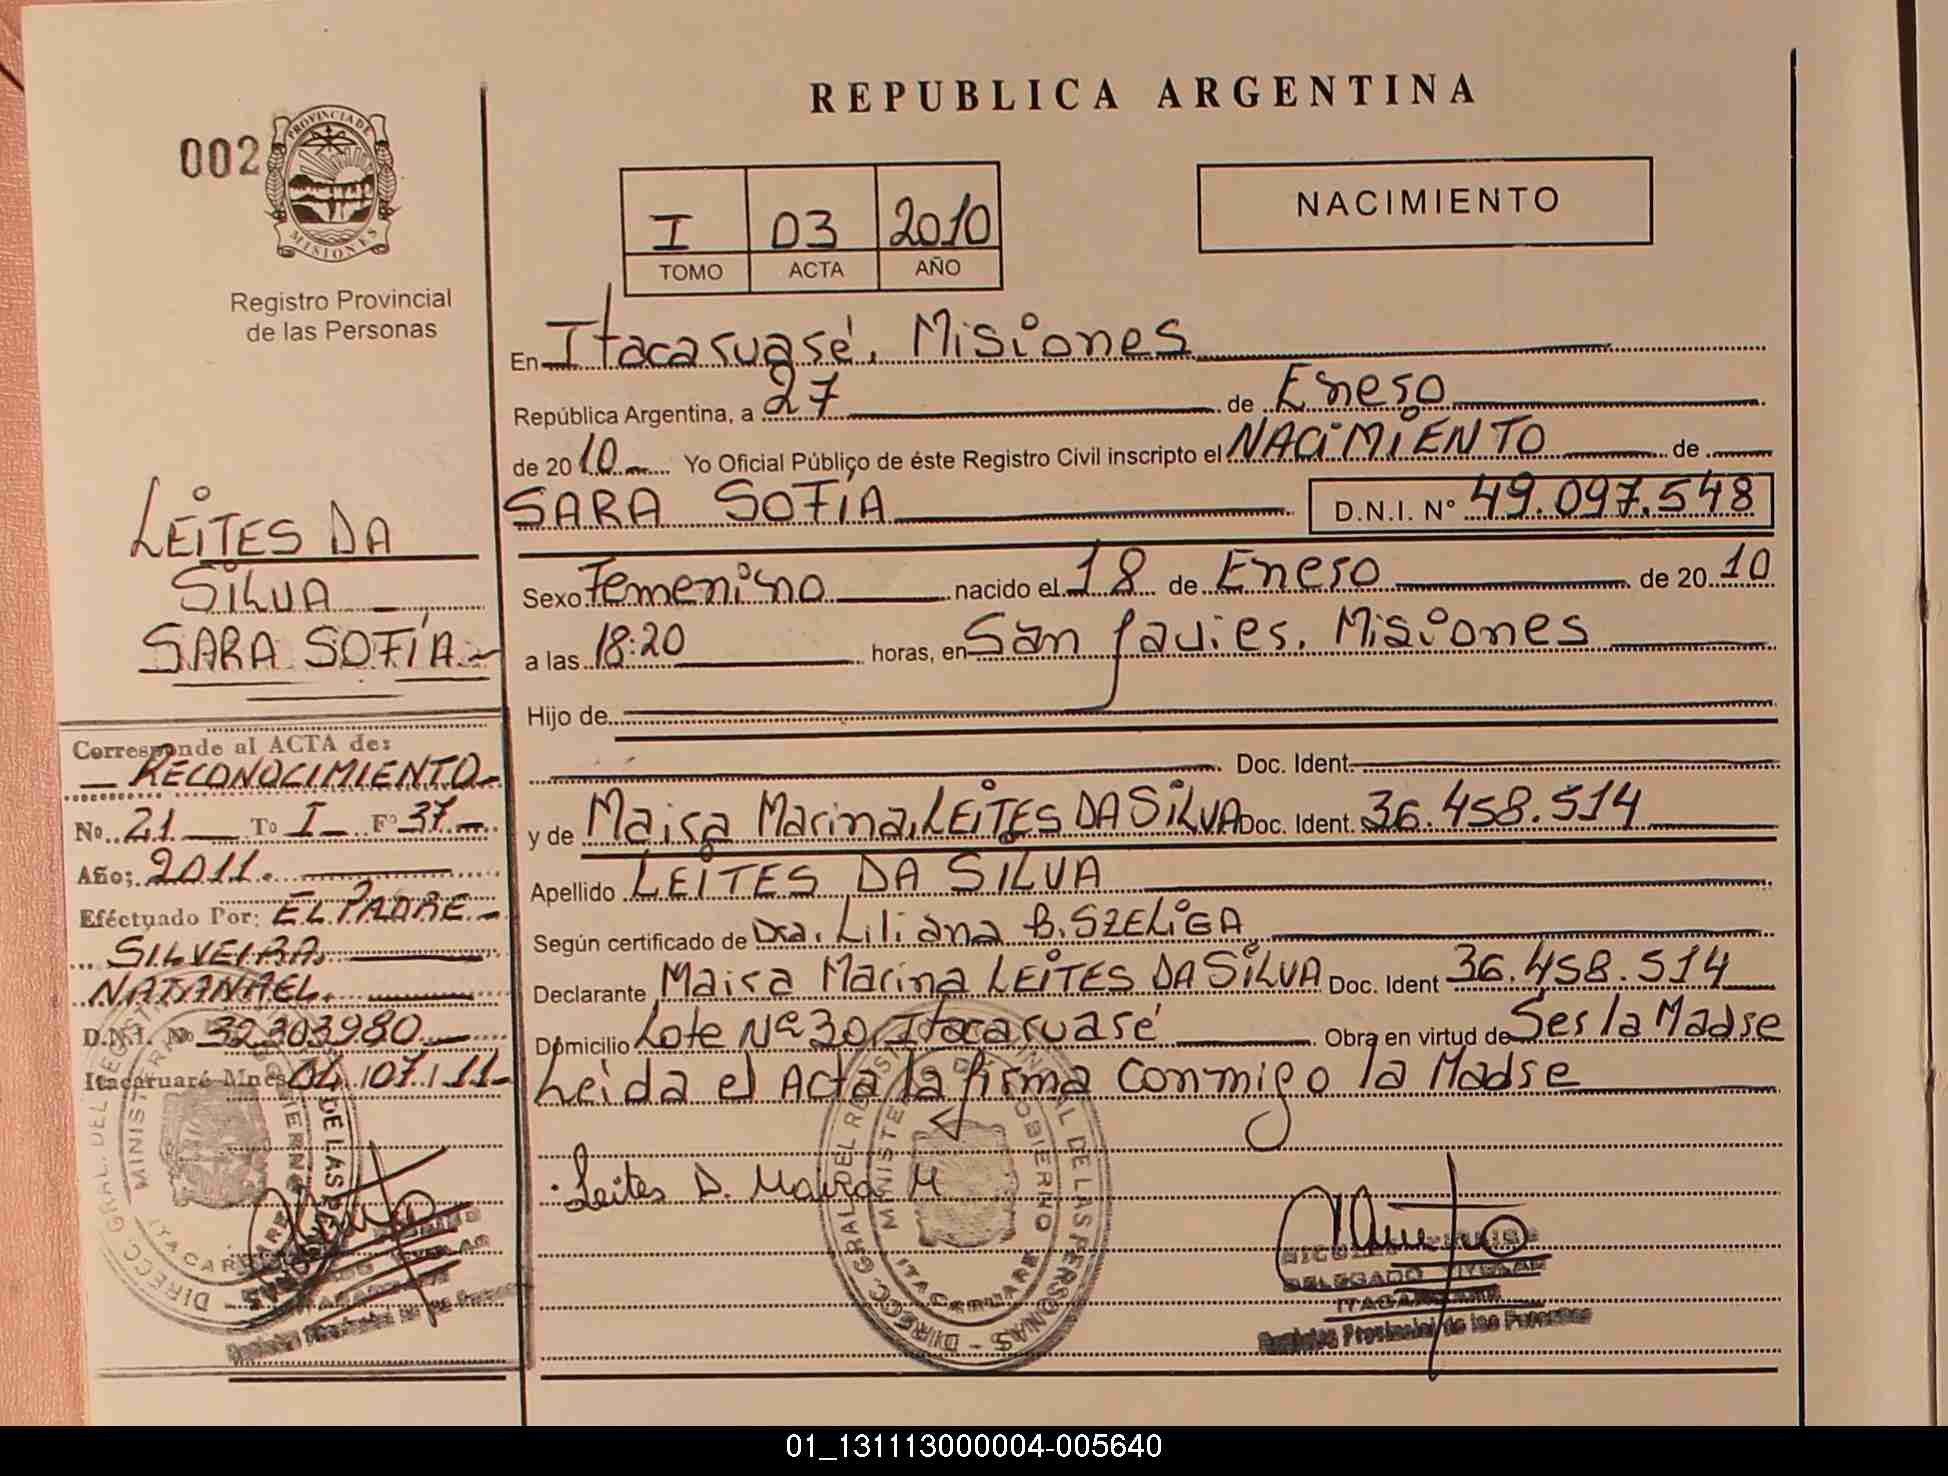 REPUBLICA ARGENTINA
002
PROVINCIA DE
MISIONES
Registro Provincial
de las Personas
I 03 2010
TOMO ACTA AÑO
NACIMIENTO
En Itacaruaré, Misiones
República Argentina, a 27 de Enero
de 2010 Yo Oficial Público de éste Registro Civil inscripto el NACIMIENTO de
SARA SOFÍA D.N.I. Nº 49.097.548
Sexo Femenino nacido el 18 de Enero de 2010
a las 18:20 horas, en San Javier, Misiones
Hijo de
Doc. Ident.
y de Maira Marina, LEITES DA SILVA Doc. Ident. 36.458.514
Apellido LEITES DA SILVA
Según certificado de Dra. Liliana B. SZELIGA
Declarante Maira Marina LEITES DA SILVA Doc. Ident 36.458.514
Domicilio Lote Nº 30, Itacaruaré Obra en virtud de Ser la Madre
Leida el Acta la firma conmigo la Madre
Leites D. Maira M
DIRECC. GRAL DEL REGISTRO PROVINCIAL DE LAS PERSONAS
MINISTERIO DE GOBIERNO
ITACARUARE
DELEGADO TITULAR
ITACARUARE
Registro Provincial de las Personas
LEITES DA
SILVA
SARA SOFÍA
Corresponde al ACTA de:
RECONOCIMIENTO
No. 21 To I Fº 37
Año; 2011.
Eféctuado Por: EL PADRE
SILVEIRA
NATANAEL.
D.N.I. No 32303980
Itacaruaré Mnes 04/07/11
DIRECC. GRAL. DEL REGISTRO
MINISTERIO DE GOBIERNO
ITACARUARE
Registro Provincial de las Personas
01_131113000004-005640